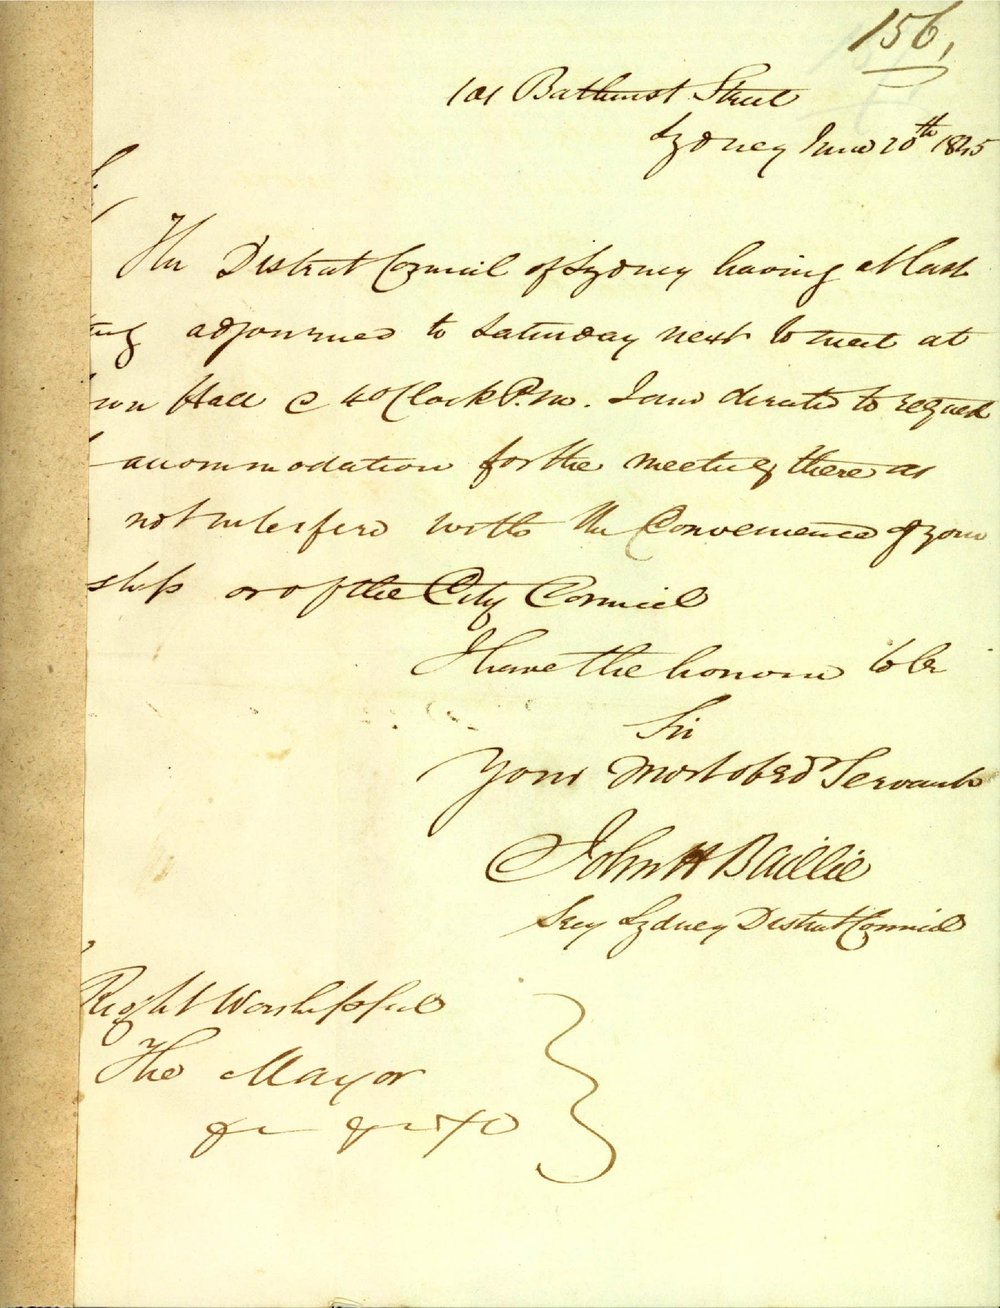 156,
101 Bathurst Street
Sydney June 20th 1845
Sir,
The District Council of Sydney having at last
ting adjourned to Saturday next to meet at
own Hall @ 4 oClock P.M. I am directed to request
accommodation for the meeting there as
not interfere with the Convenience of your
ship or of the City Council
I have the honour to be
Sir
Your most obedt Servant
John H Baillie
Secy Sydney District Council
Right Worshipful
The Mayor